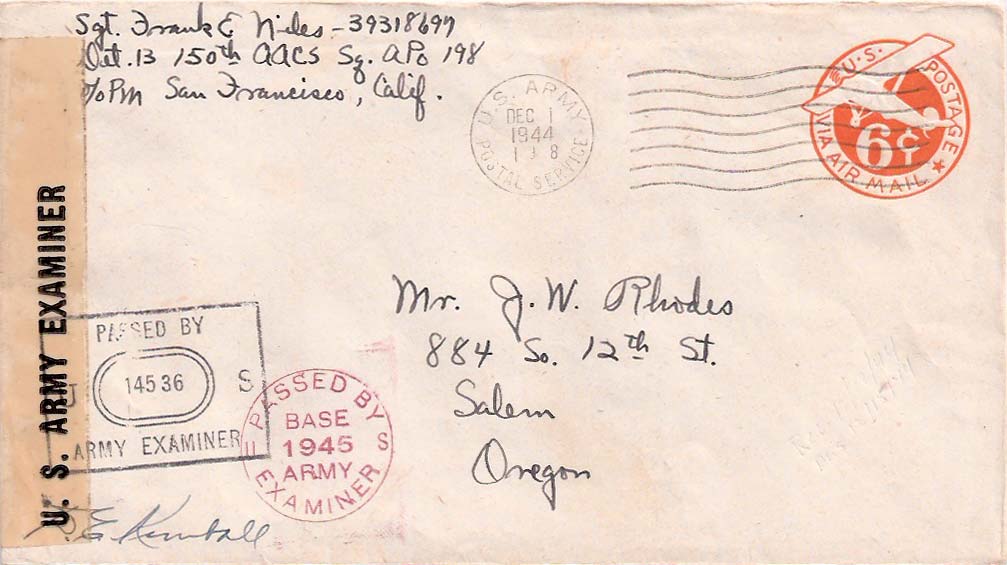 Sgt. Frank E Niles - 39318697
Det. 13 150th AACS Sq. APO 198
c/o PM San Francisco, Calif.
U.S. ARMY
DEC 1
1944
POSTAL SERVICE
U.S. POSTAGE
6¢
VIA AIR MAIL
Mr. J. W. Rhodes
884 So. 12th St.
Salem
Oregon
U. S. ARMY EXAMINER
PASSED BY
14536
S
ARMY EXAMINER
PASSED BY
BASE
E 1945 S
ARMY
EXAMINER
E Kimball